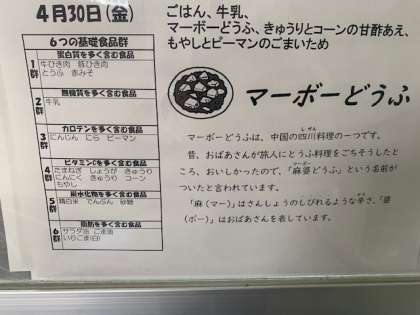 4月30日(金)
ごはん、牛乳、
マーボーどうふ、きゅうりとコーンの甘酢あえ、
もやしとピーマンのごまいため
6つの基礎食品群
1群
蛋白質を多く含む食品
牛ひき肉 豚ひき肉
とうふ 赤みそ
2群
無機質を多く含む食品
牛乳
3群
カロテンを多く含む食品
にんじん にら ピーマン
4群
ビタミンCを多く含む食品
たまねぎ しょうが きゅうり
にんにく きゅうり コーン
もやし
5群
炭水化物を多く含む食品
精白米 でんぷん 砂糖
6群
脂肪を多く含む食品
サラダ油 ごま油
いりごま(白)
マーボーどうふ
マーボーどうふは、中国の四川料理の一つです。
昔、おばあさんが旅人にとうふ料理をごちそうしたと
ころ、おいしかったので、「麻婆どうふ」という名前が
ついたと言われています。
「麻(マー)」はさんしょうのしびれるような辛さ、「婆
(ボー)」はおばあさんを表しています。